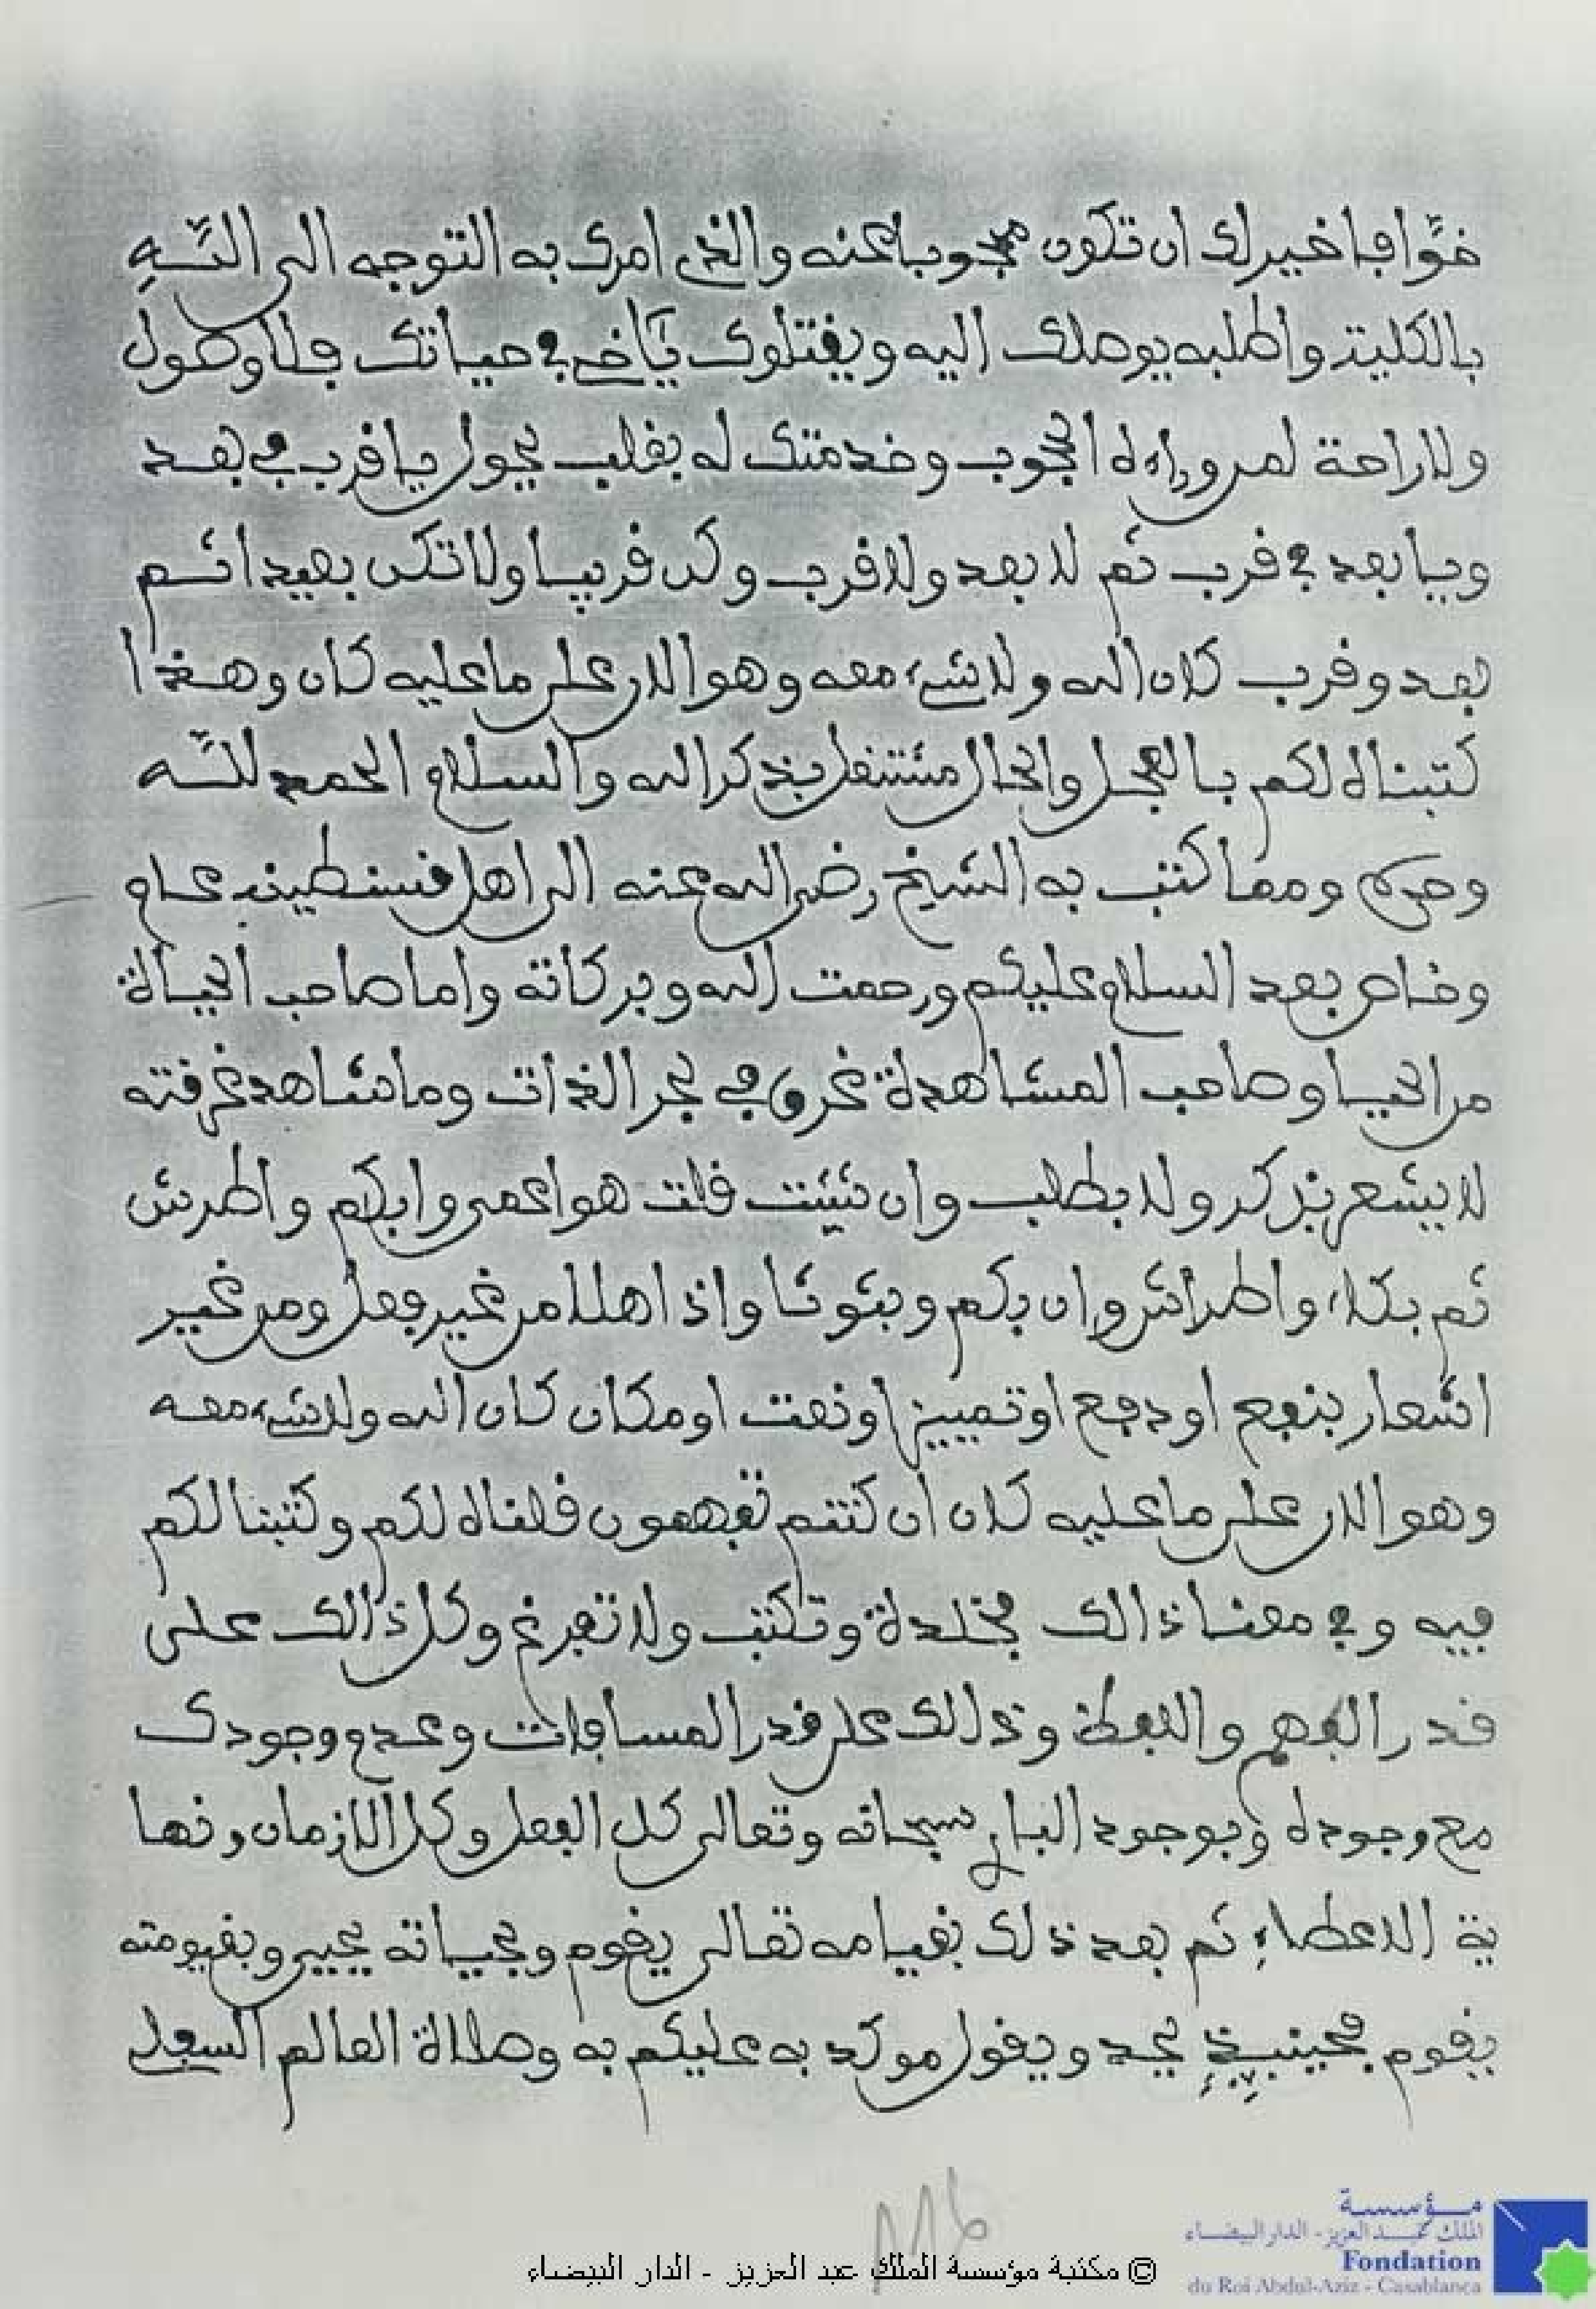 خوّافا خيرك ان تكون محجوبا عنه والذى امرك به التوجه الى اللّه
بالكلية واطلبه يوصلك اليه ويقتلوك يٓاخى في حياتك فلا وصول
ولا راحة لمن وراءه المحجوب وخدمتك له بقلب يحول يا قرب في بعد
ويا بعد في قرب ثم لا بعد ولا قرب وكن قريبا ولا تكن بعيدا ثم
بعد وقرب كان الله ولا شىء معه وهو الان على ما عليه كان وهذا
كتبناه لكم بالعجل والحال مشتغل بذكر الله والسلام الحمد للّه
وحده ومما كتب به الشيخ رضى الله عنه الى اهل قسنطينة عام
وخاص بعد السلام عليكم ورحمت الله وبركاته واما صاحب الحياة
من الحيا وصاحب المشاهدة غرق في بحر الذات وما شاهد غرفته
لا يشعر بذكر ولا بطلب وان شيئت قلت هو اعمى وابكم واطرش
ثم بكلا، واطراش وان بكم وبثوثا واذا اهلا من غير فعل ومن غير
اشعار بنفع او دفع او تمييز او نعت او مكان كان الله ولا شىء معه
وهو الان على ما عليه كان ان كنتم تفهمون قلناه لكم وكتبنا لكم
فيه وفي معنا ذالك مجلدة وتكتب ولا تفرغ وكل ذالك على
قدر الفهم واليقظة وذالك على قدر المسافات وعدم وجودك
مع وجوده وبوجود البارى سبحانه وتعالى كل الفعل وكل الازمان ونها
ية الاعطاء ثم بعد ذلك بقيامه تعالى يقوم وبحياته يحيى وبقيومته
يقوم فحينئذ يجد ويقول مولد به عليكم به وصلاة العالم السفلى
مؤسسة
الملك عبد العزيز - الدار البيضاء
Fondation
du Roi Abdul-Aziz - Casablanca
© مكتبة مؤسسة الملك عبد العزيز - الدار البيضاء